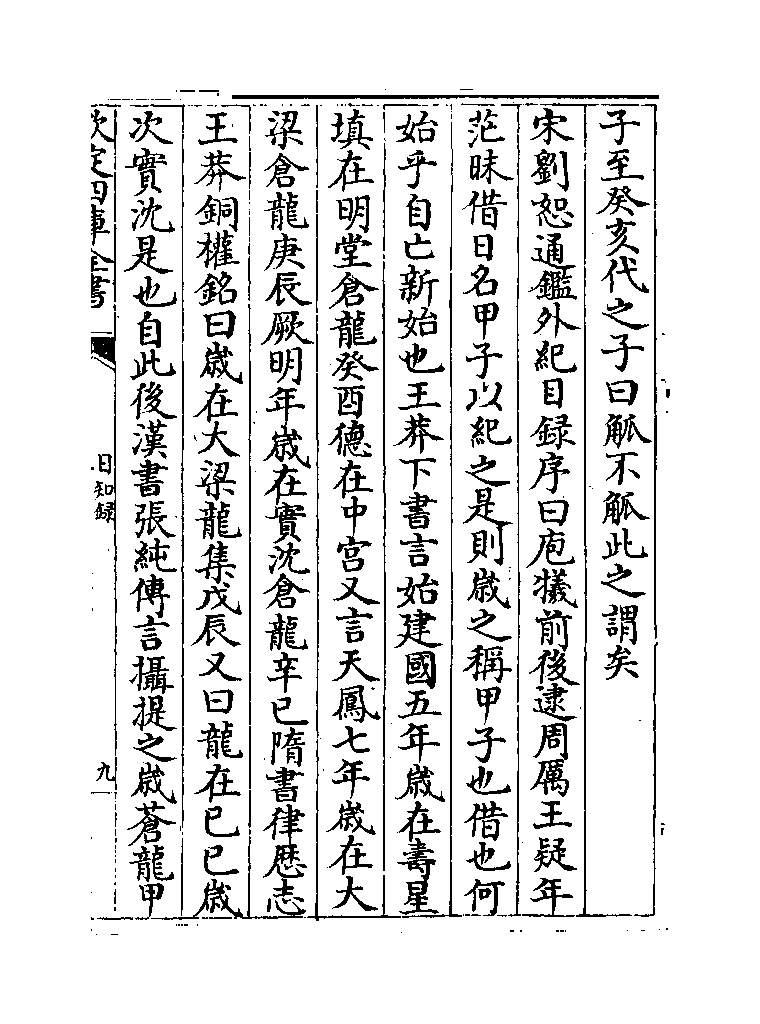 子至癸亥代之子曰觚不觚此之謂矣
宋劉恕通鑑外紀目録序曰庖犧前後逮周厲王疑年
茫昧借日名甲子以紀之是則嵗之稱甲子也借也何
始乎自亡新始也王莽下書言始建國五年嵗在壽星
填在明堂倉龍癸酉德在中宫又言天鳳七年嵗在大
梁倉龍庚辰厥明年嵗在實沈倉龍辛已隋書律厯志
王莽銅權銘曰嵗在大梁龍集戊辰又曰龍在已已嵗
次實沈是也自此後漢書張純傳言攝提之嵗蒼龍甲
欽定四庫全書
日知録
九